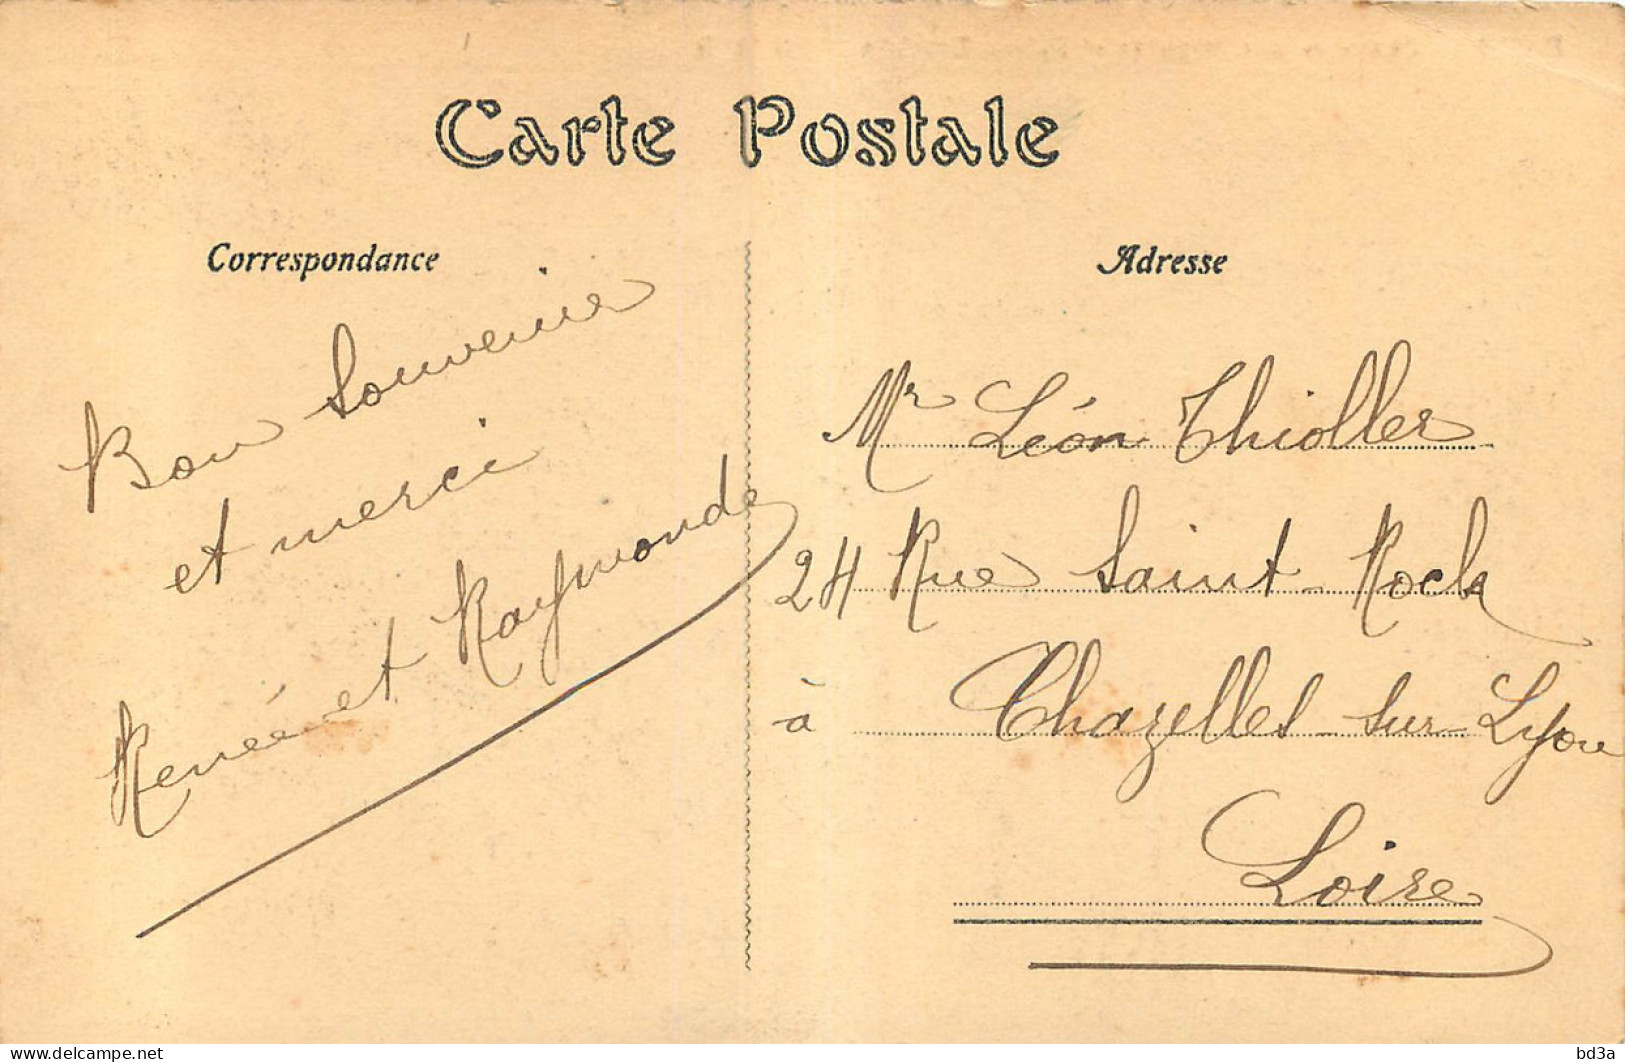 Carte Postale
Correspondance
Bon Souvenir
et merci
Renée et Raymonde
Adresse
Mr Léon Thioller
24 Rue Saint-Roch
à Chazelles-sur-Lyon
Loire
delcampe.net
bd3a